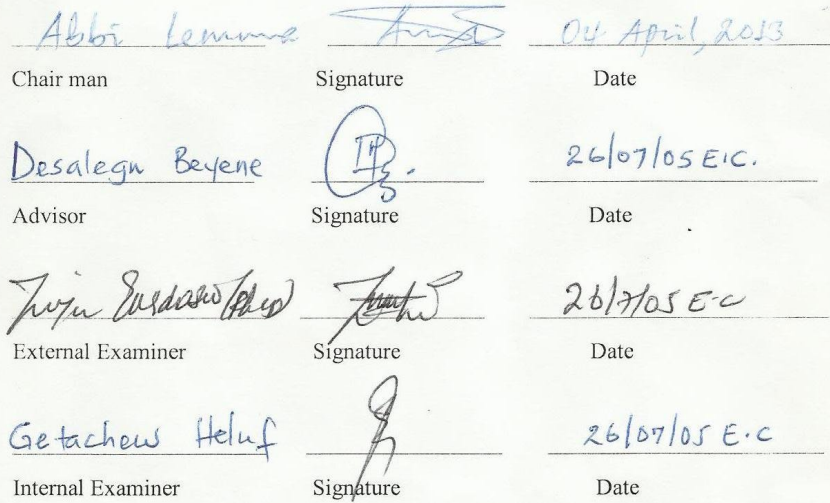 Abbi Lemma 04 April, 2013
Chair man Signature Date
Desalegn Beyene 26/07/05 E.C.
Advisor Signature Date
26/7/05 E.C
External Examiner Signature Date
Getachew Heluf 26/07/05 E.C
Internal Examiner Signature Date